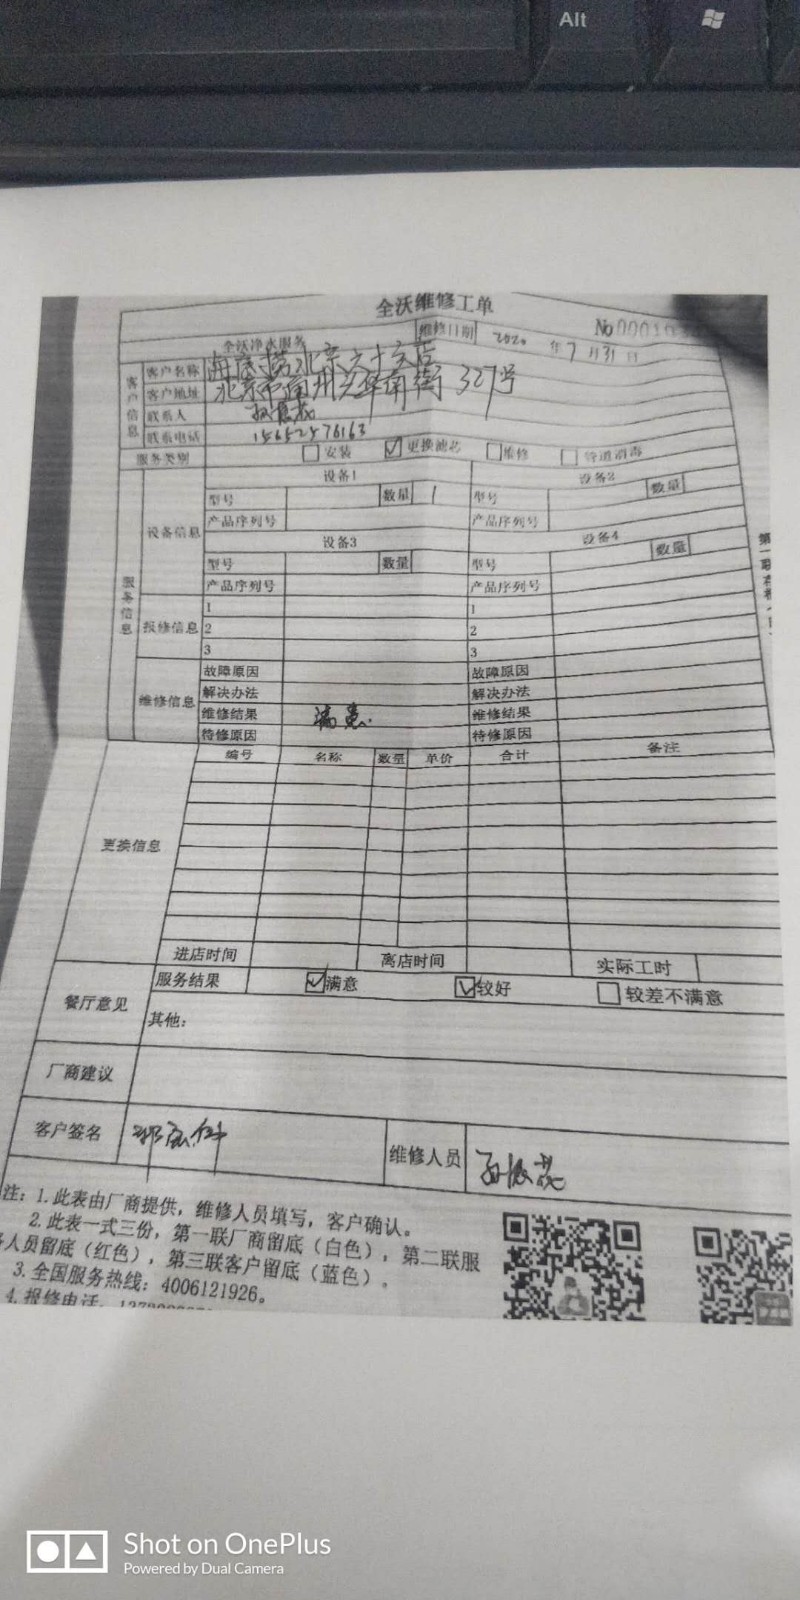 Alt
全沃维修工单
全沃净水服务 维修日期 2020 年 7 月 31 日 No
客户信息
客户名称 海底捞北京六十六店
客户地址 北京市通州 街 327号
联系人
联系电话 15652576163
服务类别 安装 更换滤芯 维修 管道消毒
服务信息
设备信息
设备1 设备2
型号 数量 1 型号 数量
产品序列号 产品序列号
设备3 设备4
型号 数量 型号 数量
产品序列号 产品序列号
报修信息
1 1
2 2
3 3
维修信息
故障原因 故障原因
解决办法 解决办法
维修结果 满意. 维修结果
待修原因 待修原因
更换信息
编号 名称 数量 单价 合计 备注
进店时间 离店时间 实际工时
餐厅意见
服务结果 满意 较好 较差不满意
其他:
厂商建议
客户签名 维修人员
注: 1.此表由厂商提供，维修人员填写，客户确认。
2.此表一式三份，第一联厂商留底（白色），第二联服
务人员留底（红色），第三联客户留底（蓝色）。
3.全国服务热线：4006121926。
4.报修电话:
Shot on OnePlus
Powered by Dual Camera